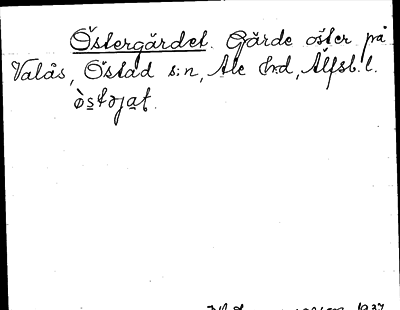 Östergärdet. Gärde öster på
Valås, Östad s:n, Ale hd, Älfsb. l.